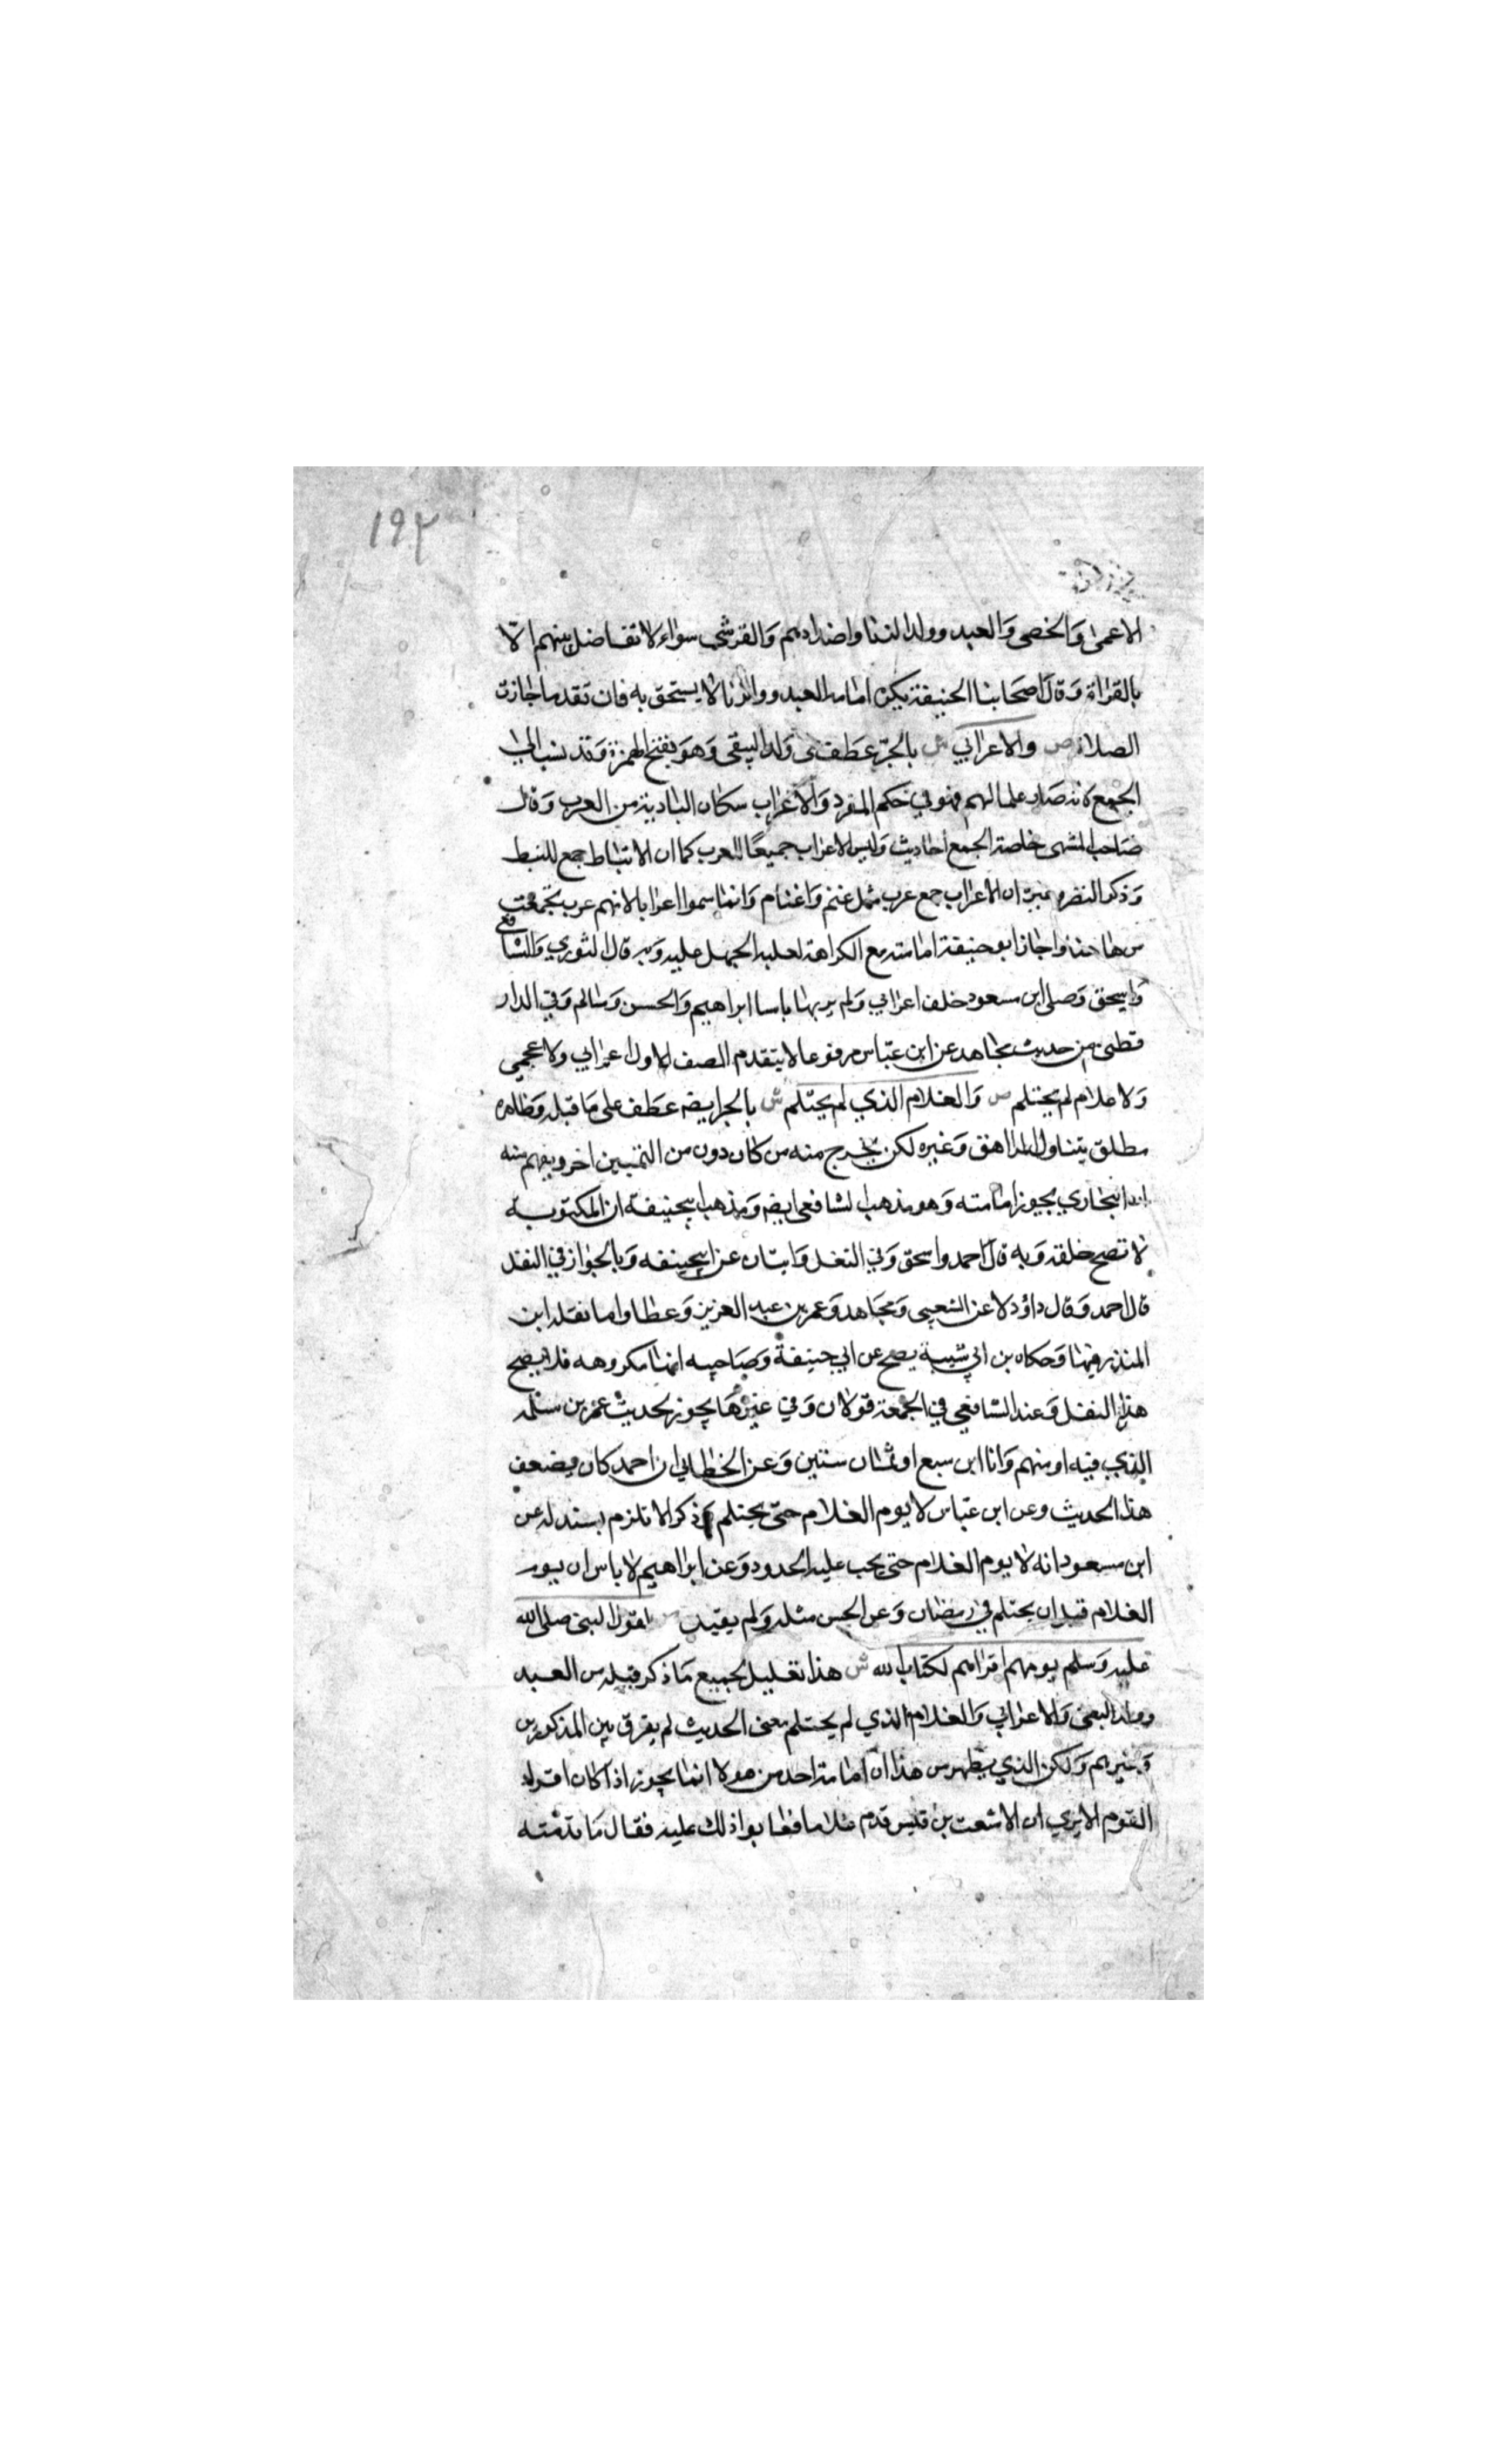 ١٩٣
الاعمى والخصى والعبد وولد الزنا واضدادهم والقرشى سواء لا تفاضل بينهم الا
بالقراة وقال اصحابنا الحنيفة يكره امامه العبد وولد الزنا لا يستحق به فان تقدما جازت
الصلاة ص والاعرابي ش بالجر عطف على ولد البغى وهو بفتح الهمزة وقد نسب الى
الجمع لانه صار علما لهم فهو في حكم المفرد والاعراب سكان البادية من العرب وقال
صاحب المنتهى خاصة الجمع احاديث وليس الاعراب جميعا للعرب كما ان الانباط جمع للنبط
وذكر النضر وغيره ان الاعراب جمع عرب مثل غنم واغنام وانما سموا اعرابا لانهم عرب تجمعت
من هاهنا واجاز ابو حنيفة امامته مع الكراهة لغلبة الجهل عليه وبه قال الثوري والشافعي
واسحق وصلى ابن مسعود خلف اعرابي ولم ير بها باسا ابراهيم والحسن وسالم وفي الدار
قطنى من حديث مجاهد عن ابن عباس مرفوعا لا يتقدم الصف الاول اعرابي ولا عجمي
ولا غلام لم يحتلم ص والغلام الذي لم يحتلم ش بالجر ايضه عطف على ما قبله وظاهره
مطلق يتناول المراهق وغيره لكن يخرج منه من كان دون من التمييز اخر ويفهم منه
ان البخاري يجوز امامته وهو مذهب الشافعى ايضه ومذهب ابيحنيفة ان المكتوبة
لا تصح خلفه وبه قال احمد واسحق وفي النفل وايتان عن ابيحنيفه وبالجواز في النفل
قال احمد وقال داؤد لا عن الشعبى ومجاهد وعمر بن عبد العزيز وعطا واما نقله ابن
المنذر فيهما وحكاه بن ابي شيبة يصح عن ابي حنيفة وصاحبيه انها مكروهه فلا يصح
هذا النفل وعند الشافعي في الجمعة قولان وفي غيرها يجوز لحديث عمر بن سلمه
الذي فيه اومنهم وانا ابن سبع او ثمان سنين وعن الخطابي ان احمد كان يضعف
هذا الحديث وعن ابن عباس لا يوم الغلام حتى يحتلم وذكر الاثرم بسند له عن
ابن مسعود انه لا يوم الغلام حتى يجب عليه الحدود وعن ابراهيم لا باس ان يور
الغلام قبل ان يحتلم في رمضان وعن الحسن مثله ولم يقيد ص لقول النبى صلى الله
عليه وسلم يومهم اقراهم لكتاب الله ش هذا تعليل لجميع ما ذكر قبله من العبد
وولد البغى والاعرابي والغلام الذي لم يحتلم معنى الحديث لم يفرق بين المذكورين
وغيرهم ولكن الذي يظهر من هذا ان امامة احد من هولا انما يجوز اذا كان اقراء
القوم الا يري ان الاشعث بن قيس قدم غلاما فعابوا ذلك عليه فقال ما قدمته